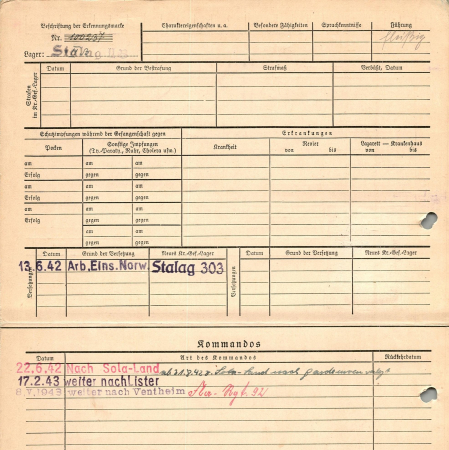 Beschriftung der Erkennungsmarke
Nr. 100237
Lager: Stalag
Charaktereigenschaften u. a.
Besondere Fähigkeiten
Sprachkenntnisse
Führung
fleißig
Strafen im Kr.-Gef.-Lager
Datum
Grund der Bestrafung
Strafmaß
Verbüßt, Datum
Schutzimpfungen während der Gefangenschaft gegen
Erkrankungen
Pocken
Sonstige Impfungen
(Ty.-Paraty., Ruhr, Cholera usw.)
Krankheit
Revier
von bis
Lazarett — Krankenhaus
von bis
am am am
Erfolg gegen gegen
am am am
Erfolg gegen gegen
am am am
Erfolg gegen gegen
am am
gegen gegen
Versetzungen
Datum
Grund der Versetzung
Neues Kr.-Gef.-Lager
Versetzungen
Datum
Grund der Versetzung
Neues Kr.-Gef.-Lager
13.6.42 Arb.Eins.Norw. Stalag 303
Kommandos
Datum
Art des Kommandos
Rückkehrdatum
22.6.42 Nach Sola-Land
17.2.43 weiter nach Lister
8.7.1943 weiter nach Ventheim